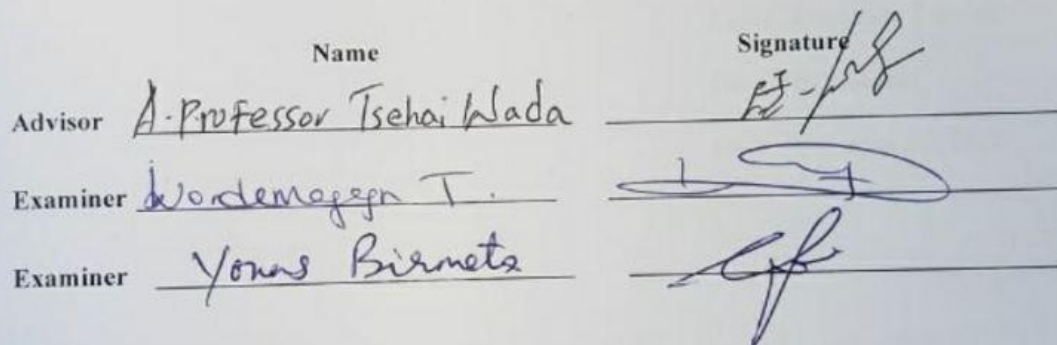 Name Signature
Advisor A. Professor Tsehai Wada
Examiner Wondemagegn T.
Examiner Yonas Birmeta